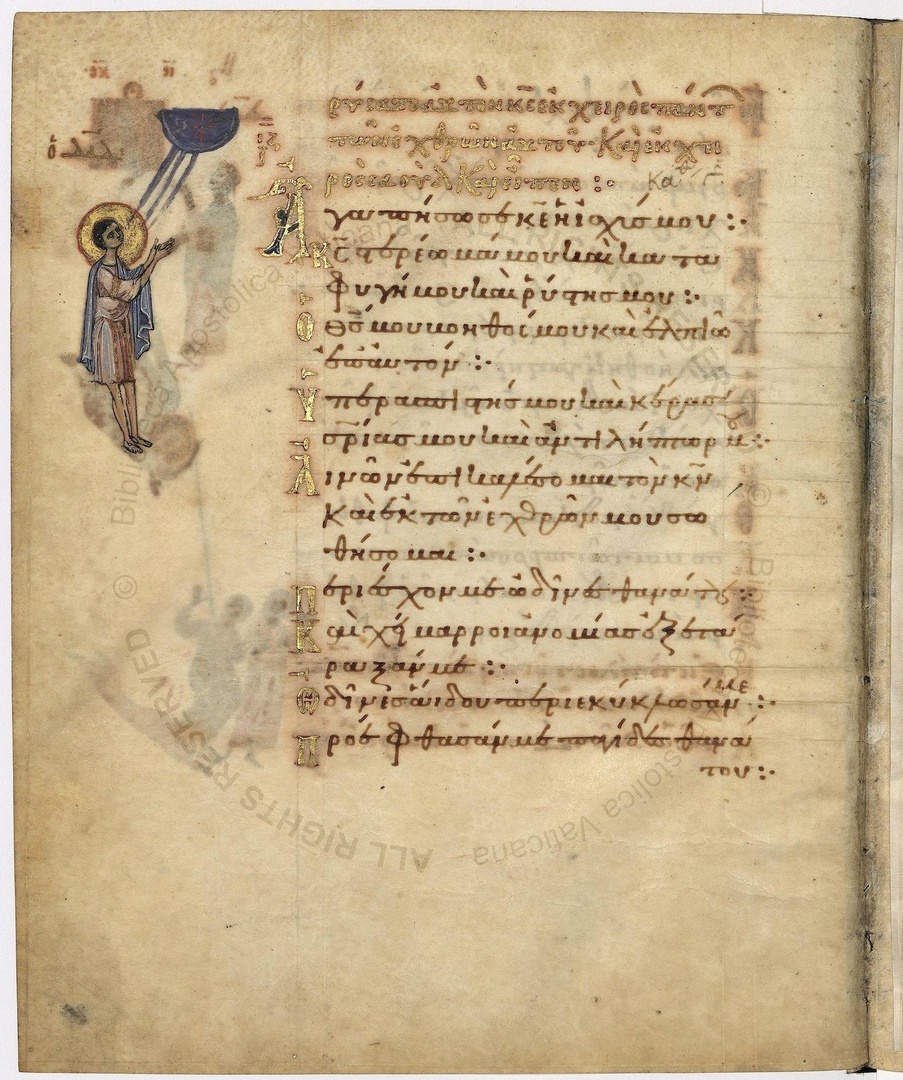 ὁ δαδ
ρύσατο αὐτὸν κ̅ς̅ ἐκ χειρὸς πάντ
τῶν ἐχθρῶν αὐτοῦ· Καὶ ἐκ χει
ρὸς σαουλ Καὶ εἶπεν :·
Ἀγαπήσω σε κ̅ε̅ ἡ ἰσχύς μου :·
Κ̅ς̅ στερέωμά μου καὶ κατα
φυγή μου καὶ ῥύστης μου :·
Ὁ θ̅ς̅ μου βοηθός μου καὶ ἐλπιῶ
ἐπ' αὐτόν :·
Ὑπερασπιστής μου καὶ κέρας
σ̅ρ̅ίας μου καὶ ἀντιλήπτωρ μου :·
Αἰνῶν ἐπικαλέσομαι τὸν κ̅ν̅
καὶ ἐκ τῶν ἐχθρῶν μου σω
θήσομαι :·
Περιέσχον με ὠδῖνες θανάτου :·
Καὶ χείμαρροι ἀνομίας ἐξετά
ραξάν με :·
Ὠδῖνες ἅιδου περιεκύκλωσάν με :·
Προέφθασάν με παγίδες θανά
του :·
© Biblioteca Apostolica Vaticana
ALL RIGHTS RESERVED